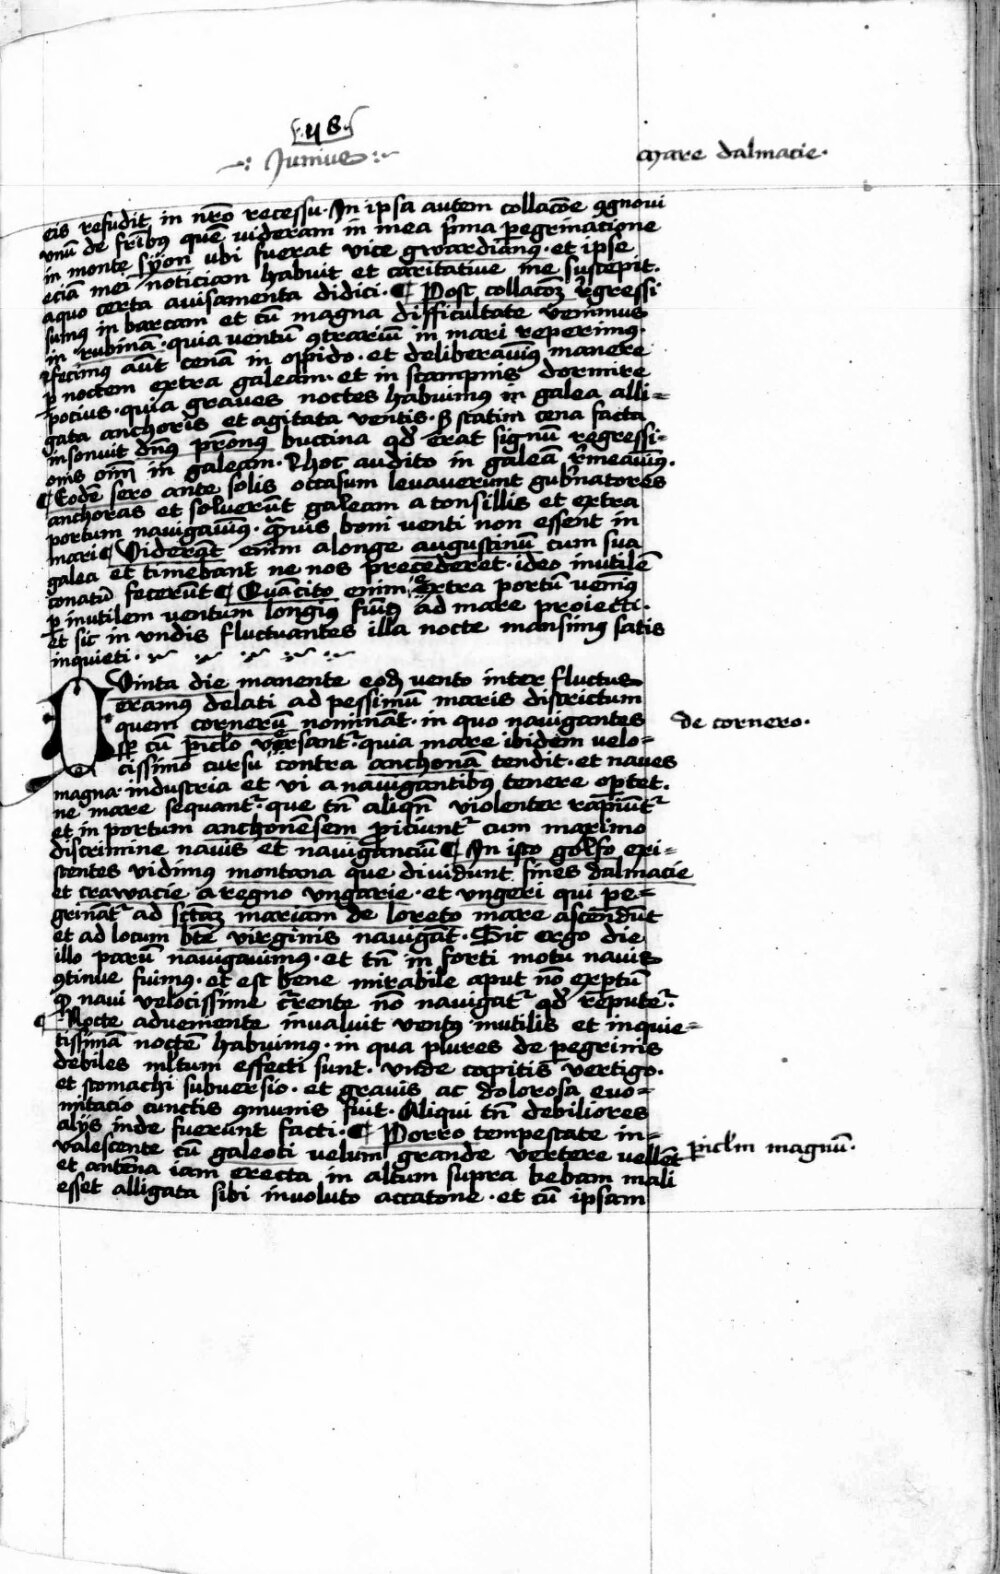 f. 48.
Junius
mare dalmacie.
eis refudit in nr̄o recessu. In ipsa autem collacōe ꝯgnoui
vnū de fr̄ibus quē videram in mea p̄ima peregrinatione
in monte syon ubi fuerat vice gwardianꝰ. et ipse
eciā mei noticiam habuit et caritatiue me suscepit.
a quo certa auisamenta didici. ¶ Post collacōꝫ r̄gressi
sumꝰ in barcam et cū magna difficultate venimus
in rubinā. quia ventū ꝯtrariū in mari reperimꝰ.
ꝓfecimꝰ aūt cenā in oppido. et deliberauimꝰ manere
ꝑ noctem extra galeam. et in scampnis dormire
potius. quia graues noctes habuimus in galea alli=
gata anchoris et agitata ventis. sꝫ statim cena facta
insonuit dn̄ꝰ pr̄onꝰ buccina qđ erat signū regressi=
onis oīm in galeam. Et hoc audito in galeā r̄meauimꝰ.
¶ Eodē sero ante solis occasum leuauerunt gub̄natores
anchoras et soluerūt galeam a tonsillis et extra
portum nauigauimꝰ. qͣuis boni venti non essent in
mari ¶ Viderāt enim a longe augustinū cum sua
galea et timebant ne nos precederet. ideo inutilē
conatū fecerūt ¶ Quācito enim extra portū venimꝰ
ꝑ inutilem ventum longiꝰ fuimꝰ ad mare proiecti.
et sic in vndis fluctuantes illa nocte mansimꝰ satis
inquieti.
Quinta die manente eodꝫ vento inter fluctus
eramus delati ad pessimū maris districtum
quem cornerū nominant. in quo nauigantes
sꝑ cū ꝑicl̄o versantr̄. quia mare ibidem velo=
cissimo cursu contra anchonā tendit. et naues
magna industria et vi a nauigantibꝰ tenere oportet.
ne mare sequantr̄. que tn̄ aliqn̄ violenter rapiūtr̄
et in portum anchonēsem piciuntr̄ cum maximo
discrimine nauis et nauiganciū ¶ In isto golfo exi=
stentes vidimus montana que diuidunt fines dalmacie
et crawacie a regno vngarie. et vngeri qui pe=
grināt ad sctāꝫ mariam de loreto mare ascendūt
et ad locum bt̄e virginis nauigāt. Sic ergo die
illo parū nauigauimus. et tn̄ in forti motu nauis
ꝯtinue fuimus. et est bene mirabile aput nō exptū
ꝙ naui velocissime c̄rente nō nauigatr̄ qđ reputer̄.
¶ Nocte adueniente inualuit ventꝰ inutilis et inquie=
tissimā noctē habuimus. in qua plures de peregrinis
debiles ml̄tum effecti sunt. vnde capitis vertigo.
et stomachi subuersio. et grauis ac dolorosa euo=
mitacio cunctis ꝯmunis fuit. Aliqui tn̄ debiliores
alijs inde fuerunt facti. ¶ Porro tempestate in=
valescente cū galeoti velum grande vertere vellēt
et antēna iam erecta in altum supra kebam mali
esset alligata sibi inuoluto accatone. et cū ipsam
de cornero.
ꝑicl̄m magnū.